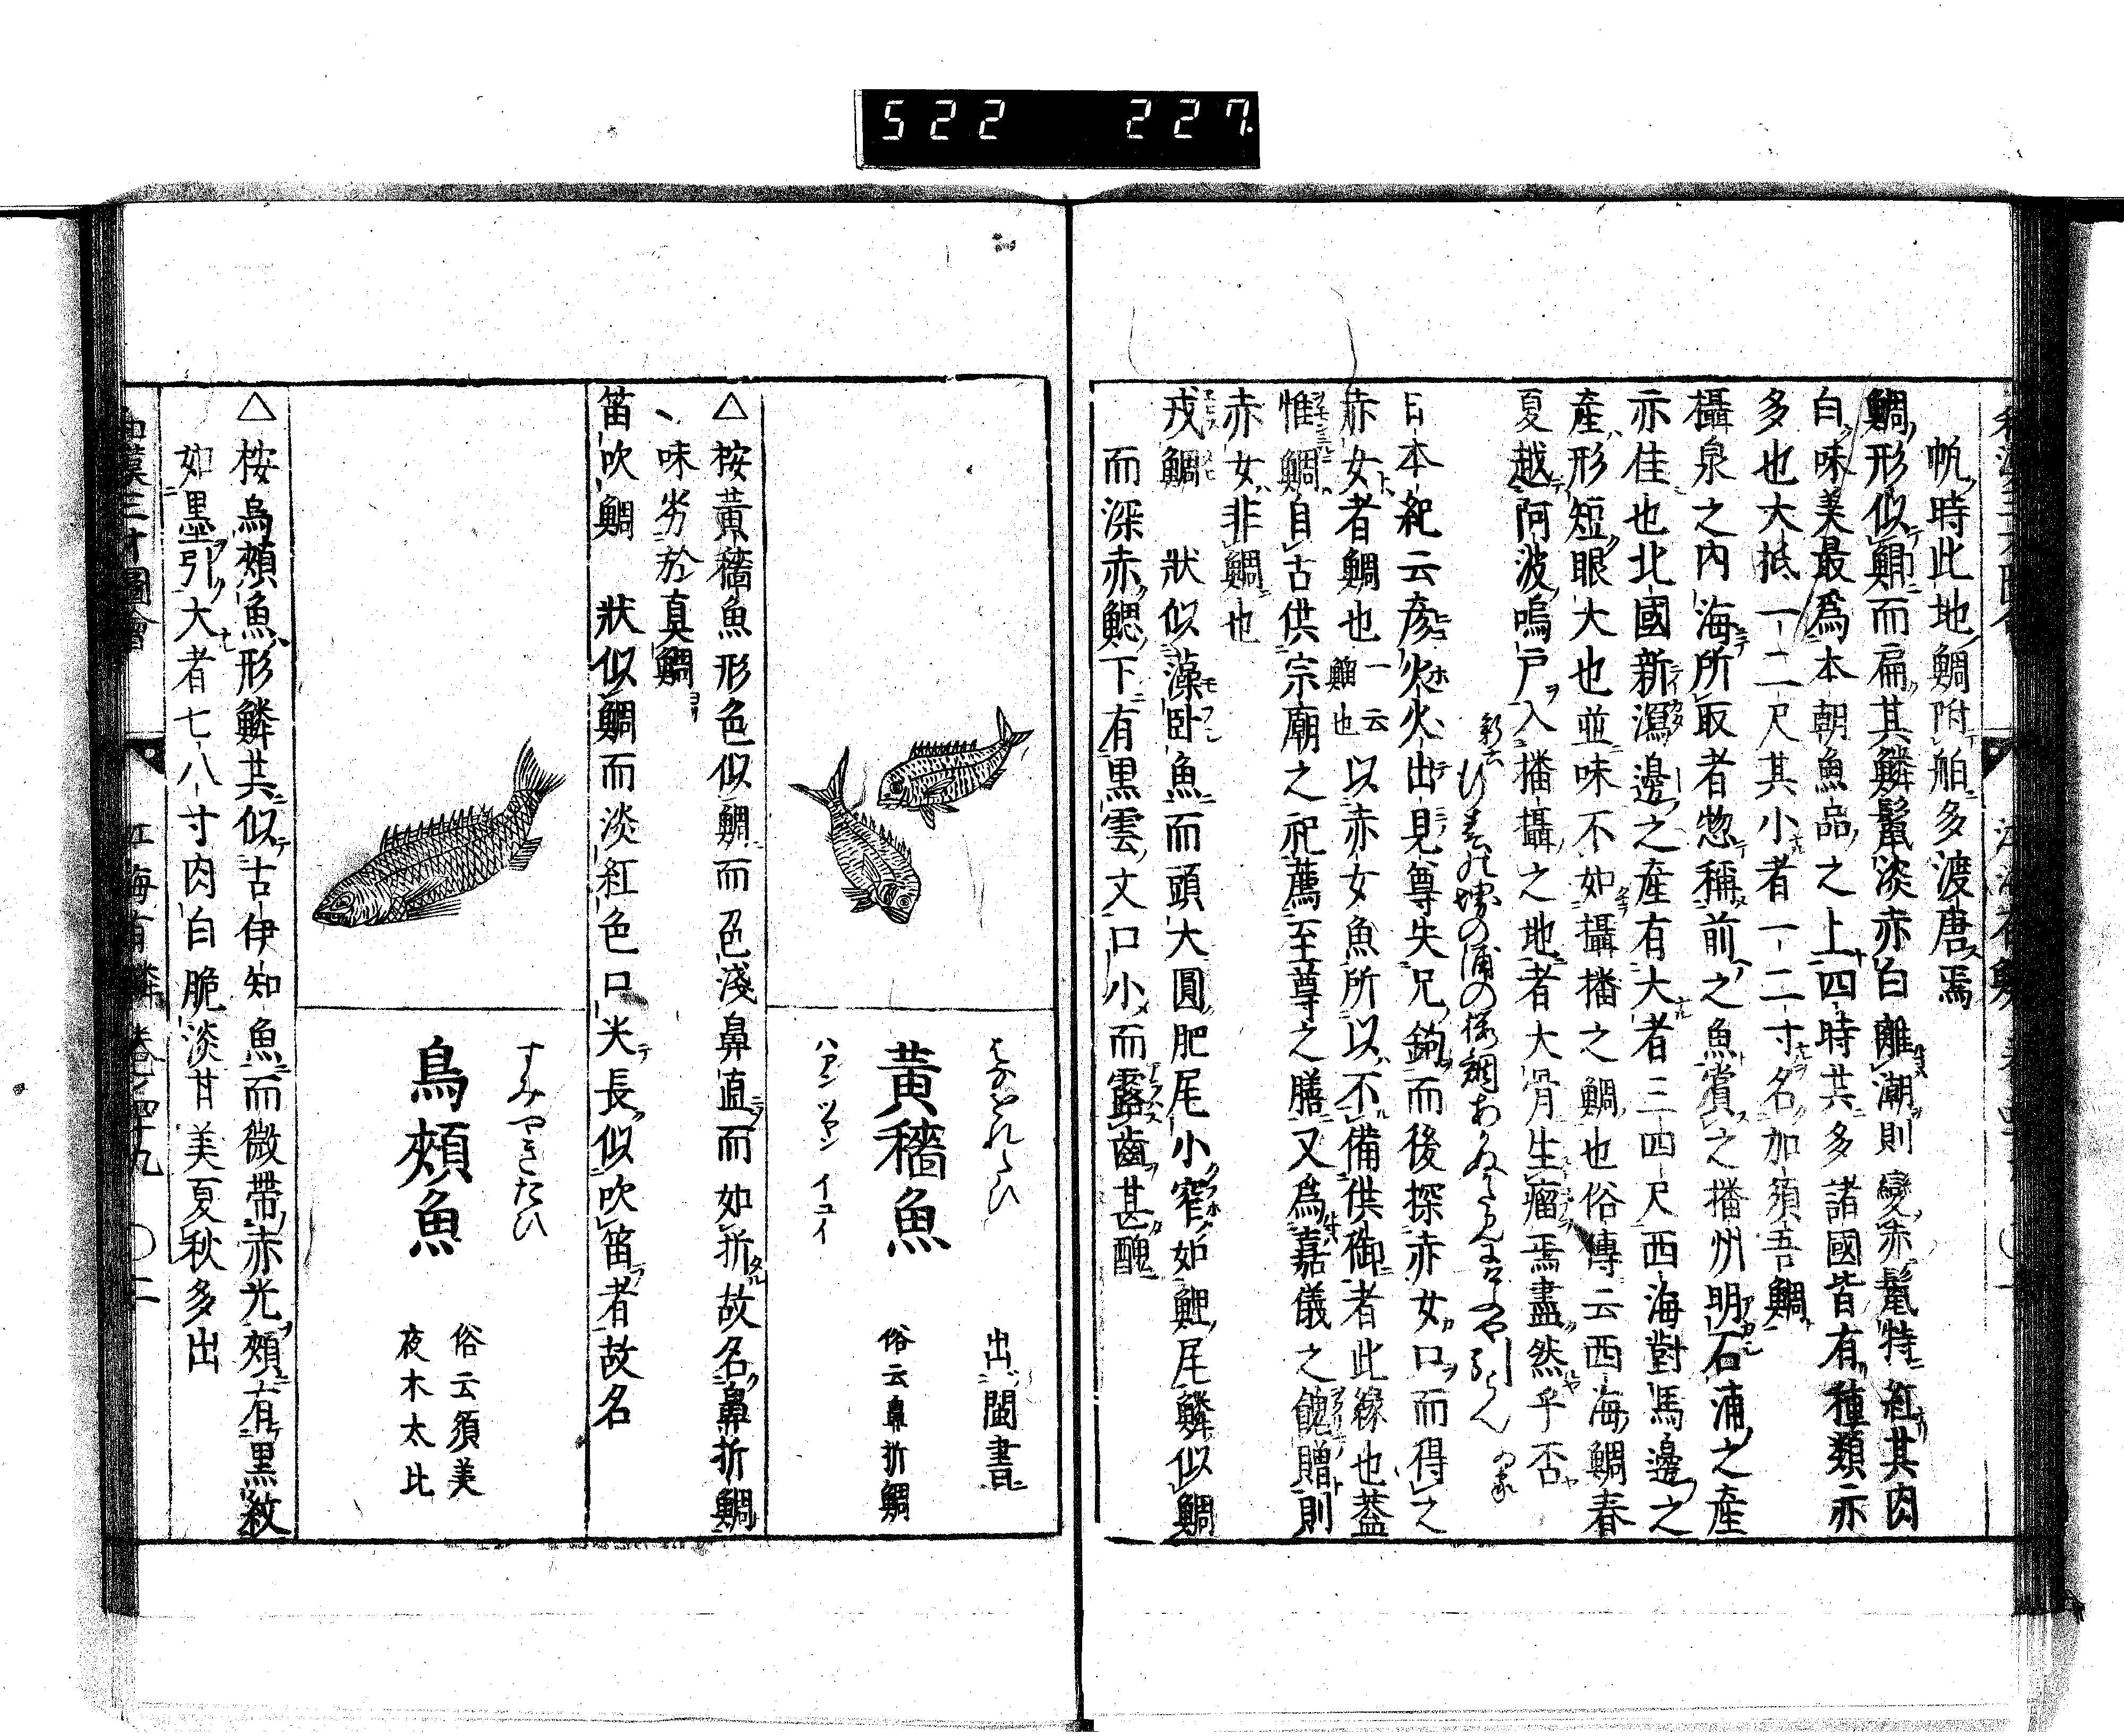 522 227.
帆時此地鯛附舶多渡唐焉
鯛形似鯽而扁其鱗鬛淡赤白離潮則變赤鬛特紅其肉
白味美最爲本朝魚品之上四時共多諸國皆有種類亦
多也大抵一二尺其小者一二寸名加須吾鯛
攝泉之内海所取者惣稱前之魚賞之播州明石浦之産
亦佳也北國新潟邊之産有大者三四尺西海對馬邊之
産形短眼大也並味不如攝播之鯛也俗傳云西海鯛春
夏越阿波鳴戸入播攝之地者大骨生瘤焉盡然乎否
日本紀云彦火火出見尊失兄鉤而後探赤女口而得之
赤女者鯛也一云鯔也以赤女魚所以不備供御者此緣也蓋
惟鯛自古供宗廟之祀薦至尊之膳又爲嘉儀之餽贈則
赤女非鯛也
戎鯛 狀似藻卧魚而頭大圓肥尾小窄如鯉尾鱗似鯛
而深赤鰓下有黒雲文口小而露齒甚醜
黃穡魚
ハアン ツヤン イユイ
出閩書
俗云鼻折鯛
△桉黃穡魚形色似鯛而色淺鼻直而如折故名鼻折鯛
味劣於真鯛
笛吹鯛 狀似鯛而淡紅色口尖長似吹笛者故名
すみやきたひ
烏頰魚
俗云須美
夜木太比
△桉烏頰魚形鱗共似古伊知魚而微帶赤光頰有黒紋
如墨引大者七八寸肉白脆淡甘美夏秋多出
和漢三才圖會 江海有鱗 卷之四十九 〇二